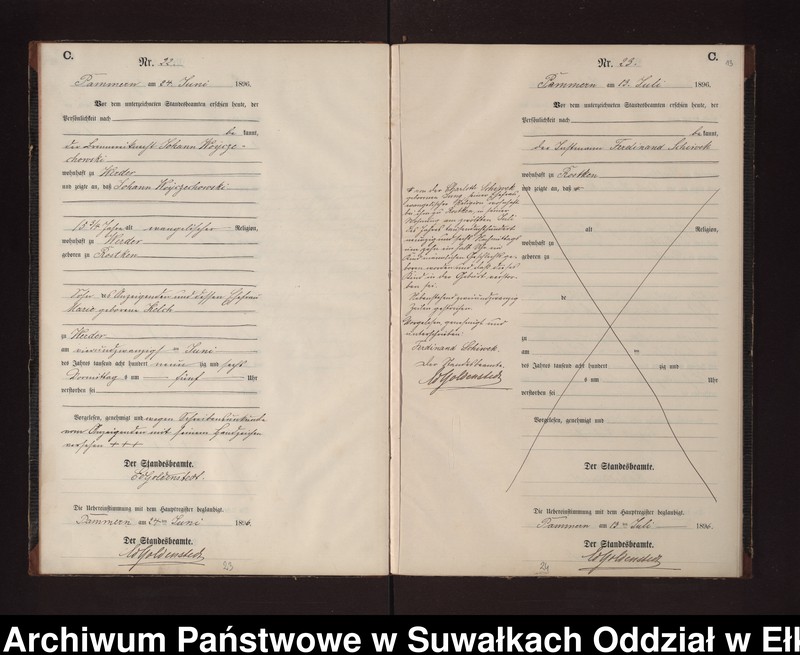 C.
Nr. 22
Pammern am 24. Juni 1896.
Vor dem unterzeichneten Standesbeamten erschien heute, der
Persönlichkeit nach
be kannt,
Johann Woysze-
chowski
wohnhaft zu Werder
und zeigte an, daß Johann Woyszechowski
13 3/4 Jahre alt evangelischer Religion,
wohnhaft zu Werder
geboren zu Rostken
Sohn des Anzeigenden und dessen Ehefrau
Marie geborene
zu Werder
am vierundzwanzigsten Juni
des Jahres tausend acht hundert neun zig und sechs
Vormittag s um fünf Uhr
verstorben sei
Vorgelesen, genehmigt und wegen Schreibensunkunde
vom Anzeigenden mit seinem Handzeichen
versehen + + +
Der Standesbeamte.
Goldenstedt.
Die Uebereinstimmung mit dem Hauptregister beglaubigt.
Pammern am 24ten Juni 1896.
Der Standesbeamte.
Goldenstedt
23
C.
13
Nr. 23.
Pammern am 13. Juli 1896.
Vor dem unterzeichneten Standesbeamten erschien heute, der
Persönlichkeit nach
be kannt,
der Instmann Ferdinand Schiwek
wohnhaft zu Rostken
und zeigte an, daß
alt Religion,
wohnhaft zu
geboren zu
de
zu
am ten
des Jahres tausend acht hundert zig und
s um Uhr
verstorben sei
Vorgelesen, genehmigt und
Der Standesbeamte.
von der Charlotte Schiwek
geborene Jung, seiner Ehefrau,
evangelischer Religion, wohnhaft
bei ihm zu Rostken, in seiner
Wohnung am zwölften Juli
des Jahres tausendachthundert
neunzig und sechs Nachmittags
um zehn ein halb Uhr ein
Kind männlichen Geschlechts ge-
boren worden und daß dieses
Kind in der Geburt verstor-
ben sei.
Nebenstehend zweiundzwanzig
Zeilen gestrichen.
Vorgelesen, genehmigt und
unterschrieben
Ferdinand Schiwek.
Der Standesbeamte.
Goldenstedt
Die Uebereinstimmung mit dem Hauptregister beglaubigt.
Pammern am 13ten Juli 1896.
Der Standesbeamte.
Goldenstedt
24
Archiwum Państwowe w Suwałkach Oddział w Ełk